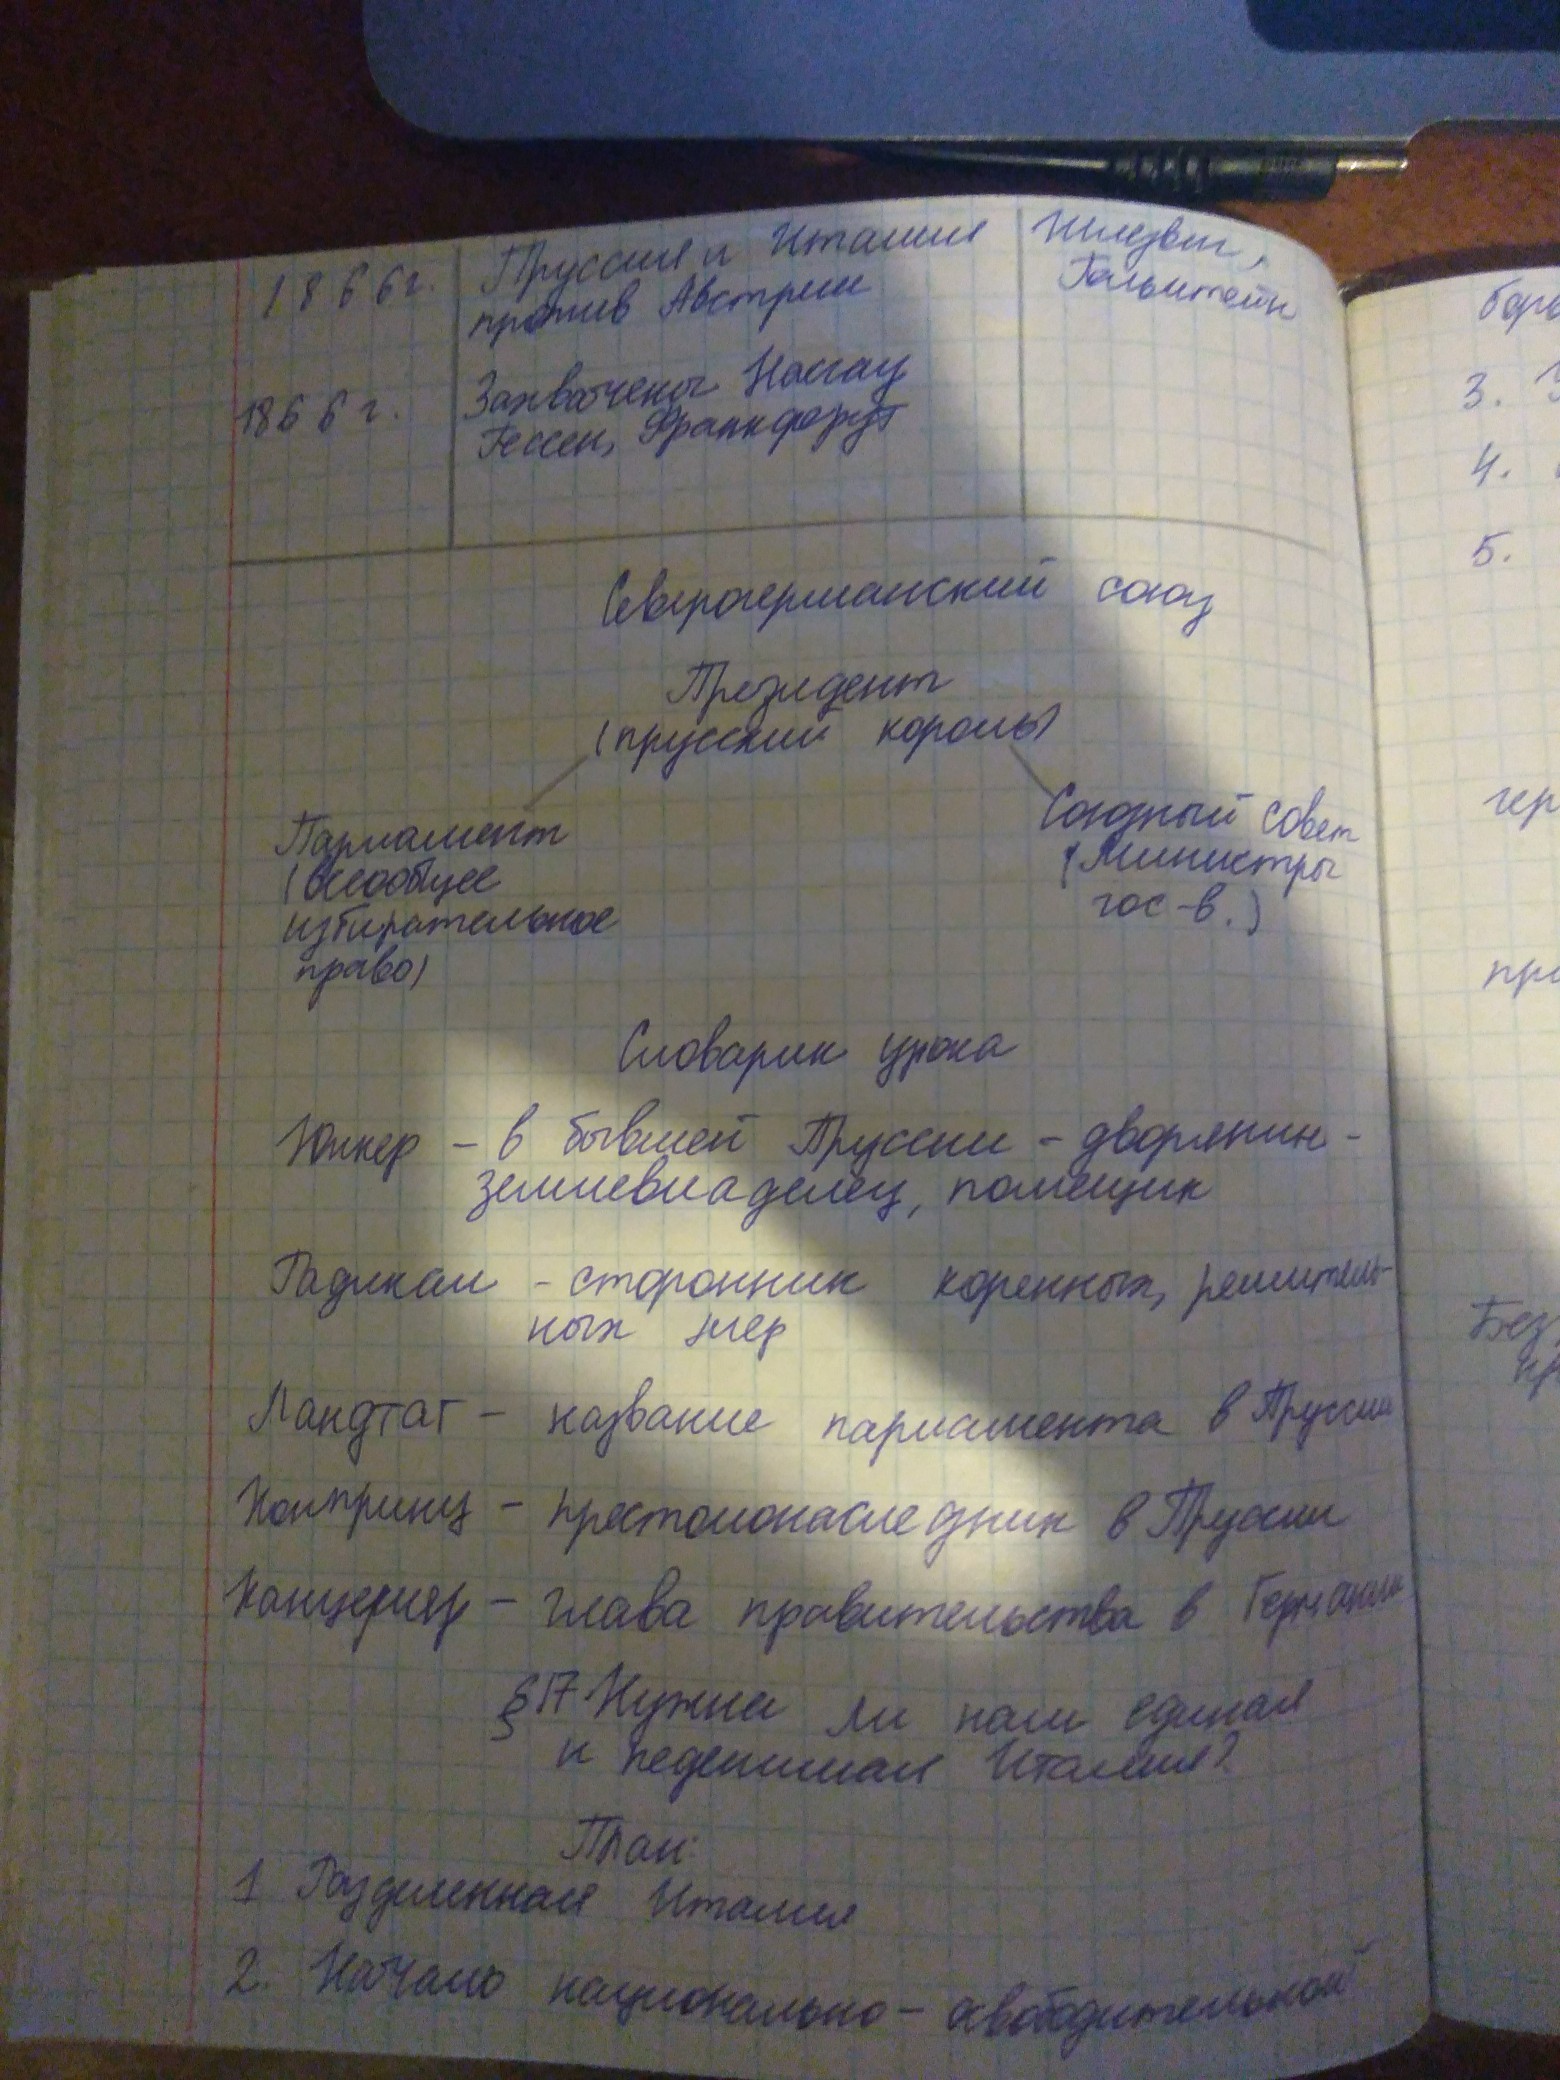 1866г. Пруссия и Италия Шлезвиг,
против Австрии Гольштейн
1866г. Захвачены Нассау
Гессен, Франкфурт
Северогерманский союз
Президент
(прусский король)
Парламент
(всеобщее
избирательное
право)
Союзный совет
(Министры
гос-в.)
Словарик урока
Юнкер - в бывшей Пруссии - дворянин-
землевладелец, помещик
Радикал - сторонник коренных, решитель-
ных мер
Ландтаг - название парламента в Пруссии
Конпринц - престолонаследник в Пруссии
Канцерлер - глава правительства в Германии
§17 Нужна ли нам единая
и неделимая Италия?
План:
1 Разделенная Италия
2. Начало национально-освободительной
3.
4.
5.
гер
Без